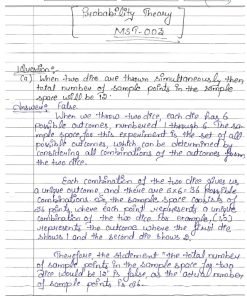 Probability Theory
MST-003
Question:
(a) When two dice are thrown simultaneously then
total number of sample points in the sample
space will be 12.
Answer: False.
When we throw two dice, each die has 6
possible outcomes, numbered 1 through 6. The sam-
ple space for this experiment is the set of all
possible outcomes, which can be determined by
considering all combinations of the outcomes from
the two dice.
Each combination of the two dice gives us
a unique outcome, and there are 6x6=36 possible
combinations. So, the sample space consists of
36 points where each point represents a unique
combination of the two dice. For example,
represents the outcome where the first die
shows 1 and the second die shows
Therefore, the statement "the total number
of sample points in the sample space for two
dice would be 12" is false, as the actual number
of sample points is 36.